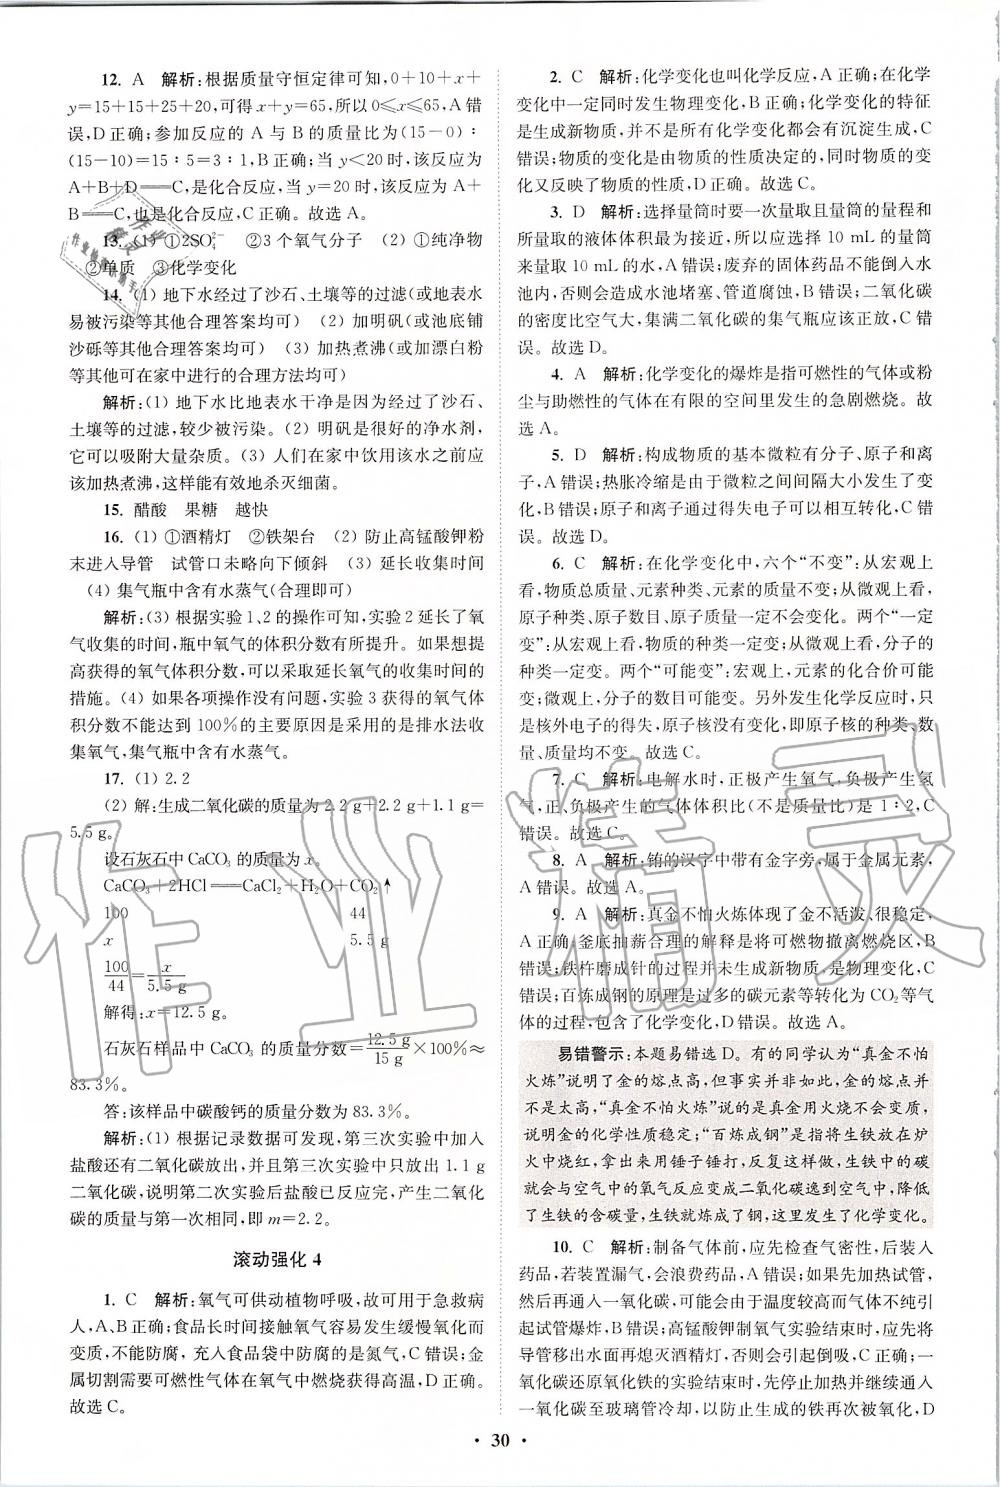 12. A 解析:根据质量守恒定律可知,0+10+x+
y=15+15+25+20,可得x+y=65,所以0≤x≤65,A错
误,D正确;参加反应的A与B的质量比为(15-0)∶
(15-10)=15∶5=3∶1,B正确;当y<20时,该反应为
A+B+D══C,是化合反应,当y=20时,该反应为A+
B══C,也是化合反应,C正确。故选A。
13. (1) ①2SO₄²⁻ ②3个氧气分子 (2) ①纯净物
②单质 ③化学变化
14. (1) 地下水经过了沙石、土壤等的过滤(或地表水
易被污染等其他合理答案均可) (2) 加明矾(或池底铺
沙砾等其他合理答案均可) (3) 加热煮沸(或加漂白粉
等其他可在家中进行的合理方法均可)
解析:(1) 地下水比地表水干净是因为经过了沙石、
土壤等的过滤,较少被污染。(2) 明矾是很好的净水剂,
它可以吸附大量杂质。(3) 人们在家中饮用该水之前应
该加热煮沸,这样能有效地杀灭细菌。
15. 醋酸 果糖 越快
16. (1) ①酒精灯 ②铁架台 (2) 防止高锰酸钾粉
末进入导管 试管口未略向下倾斜 (3) 延长收集时间
(4) 集气瓶中含有水蒸气(合理即可)
解析:(3) 根据实验1、2的操作可知,实验2延长了氧
气收集的时间,瓶中氧气的体积分数有所提升。如果想提
高获得的氧气体积分数,可以采取延长氧气的收集时间的
措施。(4) 如果各项操作没有问题,实验3获得的氧气体
积分数不能达到100%的主要原因是采用的是排水法收
集氧气,集气瓶中含有水蒸气。
17. (1) 2.2
(2) 解:生成二氧化碳的质量为2.2 g+2.2 g+1.1 g=
5.5 g。
设石灰石中CaCO₃的质量为x。
CaCO₃+2HCl══CaCl₂+H₂O+CO₂↑
100 44
x 5.5 g
100/44=x/5.5 g
解得:x=12.5 g。
石灰石样品中CaCO₃的质量分数=12.5 g/15 g×100%≈
83.3%。
答:该样品中碳酸钙的质量分数为83.3%。
解析:(1) 根据记录数据可发现,第三次实验中加入
盐酸还有二氧化碳放出,并且第三次实验中只放出1.1 g
二氧化碳,说明第二次实验后盐酸已反应完,产生二氧化
碳的质量与第一次相同,即m=2.2。
滚动强化4
1. C 解析:氧气可供动植物呼吸,故可用于急救病
人,A、B正确;食品长时间接触氧气容易发生缓慢氧化而
变质,不能防腐,充入食品袋中防腐的是氮气,C错误;金
属切割需要可燃性气体在氧气中燃烧获得高温,D正确。
故选C。
2. C 解析:化学变化也叫化学反应,A正确;在化学
变化中一定同时发生物理变化,B正确;化学变化的特征
是生成新物质,并不是所有化学变化都会有沉淀生成,C
错误;物质的变化是由物质的性质决定的,同时物质的变
化又反映了物质的性质,D正确。故选C。
3. D 解析:选择量筒时要一次量取且量筒的量程和
所量取的液体体积最为接近,所以应选择10 mL的量筒
来量取10 mL的水,A错误;废弃的固体药品不能倒入水
池内,否则会造成水池堵塞、管道腐蚀,B错误;二氧化碳
的密度比空气大,集满二氧化碳的集气瓶应该正放,C错
误。故选D。
4. A 解析:化学变化的爆炸是指可燃性的气体或粉
尘与助燃性的气体在有限的空间里发生的急剧燃烧。故
选A。
5. D 解析:构成物质的基本微粒有分子、原子和离
子,A错误;热胀冷缩是由于微粒之间间隔大小发生了变
化,B错误;原子和离子通过得失电子可以相互转化,C错
误。故选D。
6. C 解析:在化学变化中,六个“不变”:从宏观上
看,物质总质量、元素种类、元素的质量不变;从微观上看,
原子种类、原子数目、原子质量一定不会变化。两个“一定
变”:从宏观上看,物质的种类一定变;从微观上看,分子的
种类一定变。两个“可能变”:宏观上,元素的化合价可能
变;微观上,分子的数目可能变。另外发生化学反应时,只
是核外电子的得失,原子核没有变化,即原子核的种类、数
量、质量均不变。故选C。
7. C 解析:电解水时,正极产生氧气,负极产生氢
气,正、负极产生的气体体积比(不是质量比)是1∶2,C
错误。故选C。
8. A 解析:锎的汉字中带有金字旁,属于金属元素,
A错误。故选A。
9. A 解析:真金不怕火炼体现了金不活泼、很稳定,
A正确;釜底抽薪合理的解释是将可燃物撤离燃烧区,B
错误;铁杵磨成针的过程并未生成新物质,是物理变化,C
错误;百炼成钢的原理是过多的碳元素等转化为CO₂等气
体的过程,包含了化学变化,D错误。故选A。
易错警示:本题易错选D。有的同学认为“真金不怕
火炼”说明了金的熔点高,但事实并非如此,金的熔点并
不是太高,“真金不怕火炼”说的是真金用火烧不会变质,
说明金的化学性质稳定;“百炼成钢”是指将生铁放在炉
火中烧红,拿出来用锤子锤打,反复这样做,生铁中的碳
就会与空气中的氧气反应变成二氧化碳逸到空气中,降低
了生铁的含碳量,生铁就炼成了钢,这里发生了化学变化。
10. C 解析:制备气体前,应先检查气密性,后装入
药品,若装置漏气,会浪费药品,A错误;如果先加热试管,
然后再通入一氧化碳,可能会由于温度较高而气体不纯引
起试管爆炸,B错误;高锰酸钾制氧气实验结束时,应先将
导管移出水面再熄灭酒精灯,否则会引起倒吸,C正确;一
氧化碳还原氧化铁的实验结束时,应停止加热并继续通入
一氧化碳至玻璃管冷却,以防止生成的铁再次被氧化,D
· 30 ·
作业精灵